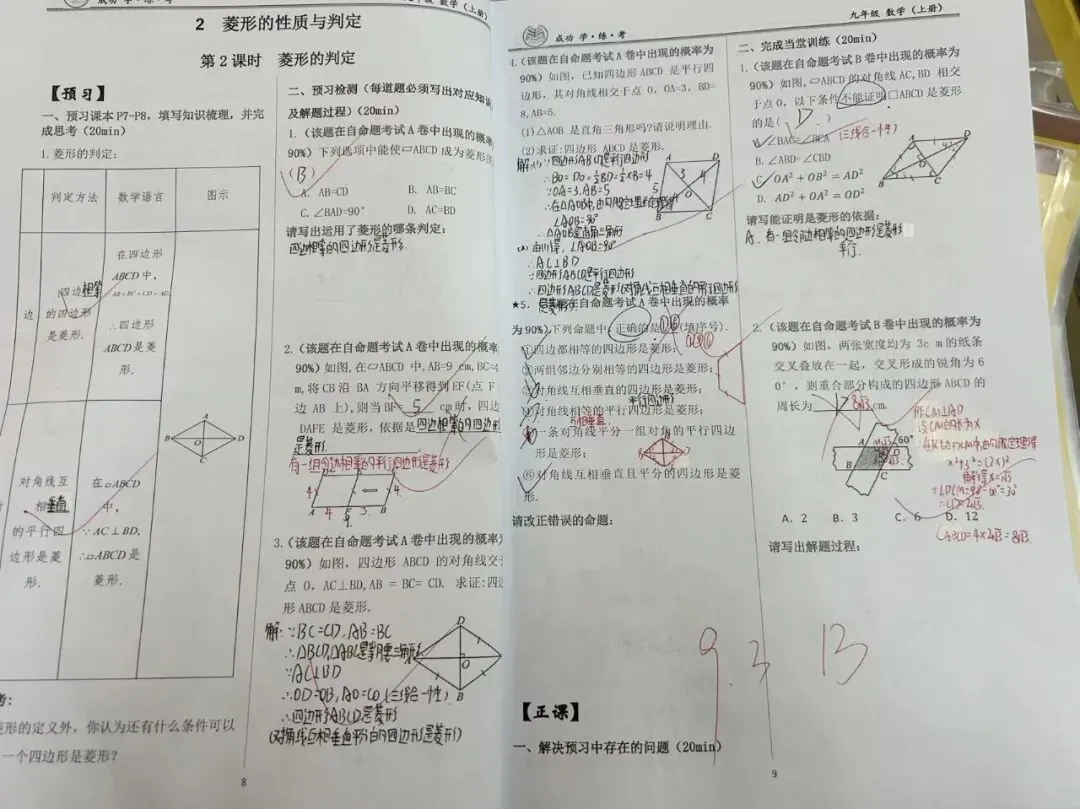 成功 学·练·考
年级 数学(上册)
2 菱形的性质与判定
第2课时 菱形的判定
【预习】
一、预习课本P7-P8,填写知识梳理,并完
成思考(20min)
1.菱形的判定:
判定方法 数学语言 图示
边
四边相等
的四边形
是菱形.
在四边形
ABCD中,
AB=BC=CD=AD,
∴四边形
ABCD是菱
形.
对角线互
相垂直
的平行四
边形是菱
形.
在▱ABCD
中,
∵AC⊥BD,
∴▱ABCD是
菱形.
A
B O D
C
考:
菱形的定义外,你认为还有什么条件可以
一个四边形是菱形?
二、预习检测(每道题必须写出对应知识
及解题过程)(20min)
1.(该题在自命题考试A卷中出现的概率
90%)下列选项中能使▱ABCD成为菱形的
(B)
A. AB=CD B. AB=BC
C. ∠BAD=90° D. AC=BD
请写出运用了菱形的哪条判定:
四边相等的四边形是菱形.
2.(该题在自命题考试A卷中出现的概率
90%)如图,在▱ABCD中,AB=9 cm,BC=4
m,将CB沿 BA 方向平移得到EF(点 F
边 AB 上),则当 BF= 5 cm时,四边
DAFE 是菱形,依据是四边相等的四边形
是菱形.
有一组邻边相等的平行四边形是菱形
3.(该题在自命题考试A卷中出现的概率为
90%)如图,四边形 ABCD 的对角线交
点 O,AC⊥BD,AB = BC= CD. 求证:四边
形ABCD是菱形.
解:∵BC=CD,AB=BC
∴△BCD,△ABC是等腰三角形
∵AC⊥BD
∴OD=OB,AO=CO(三线合一性)
∴四边形ABCD是菱形
(对角线互相垂直平分的四边形是菱形)
8
成功 学·练·考
九年级 数学(上册)
4.(该题在自命题考试A卷中出现的概率为
90%)如图,已知四边形ABCD 是平行四
边形,其对角线相交于点 O,OA=3, BD=
8,AB=5.
(1)△AOB 是直角三角形吗?请说明理由.
(2)求证:四边形 ABCD是菱形.
解:(1)∵四边形ABCD是平行四边形
∴BO=DO=½BD=½×8=4
∵OA=3,AB=5
∴在△AOB中,由勾股定理逆定理得
∠AOB=90°
∴△AOB是直角三角形
(2)由(1)得,∠AOB=90°
∴AC⊥BD
∵四边形ABCD是平行四边形
∴四边形ABCD是菱形(对角线互相垂直的平行四边形
是菱形)
★5.(该题在自命题考试A卷中出现的概率
为90%)下列命题中,正确的是①⑥(填序号).
①⑤⑥
①四边都相等的四边形是菱形;
②两组邻边分别相等的四边形是菱形;
③对角线互相垂直的四边形是菱形;
平行四边形
④对角线相等的平行四边形是菱形;
互相垂直
⑤一条对角线平分一组对角的平行四边
形是菱形;
⑥对角线互相垂直且平分的四边形是菱
形.
请改正错误的命题:
【正课】
一、解决预习中存在的问题(20min)
二、完成当堂训练(20min)
1.(该题在自命题考试B卷中出现的概率为
90%)如图,▱ABCD的对角线AC,BD 相交
于点O,以下条件不能证明▱ABCD是菱形
的是( D )
A. ∠BAC=∠BCA (三线合一性)
B. ∠ABD=∠CBD
C. OA²+OB²=AD²
D. AD²+OA²=OD²
请写能证明是菱形的依据:
A. 有一组邻边相等的四边形是菱形
平行.
2.(该题在自命题考试B卷中出现的概率为
90%)如图,两张宽度均为 3c m的纸条
交叉叠放在一起,交叉形成的锐角为6
0°,则重合部分构成的四边形ABCD的
周长为 8√3 cm.
作CM⊥AD
设CM的长为x
在Rt△DCM中,由勾股定理得
x²+3²=(2x)²
解得x=√3
∴CD=2√3
C ABCD=4×2√3=8√3
A. 2 B. 3 C. 6 D. 12
请写出解题过程:
9.3 B
9